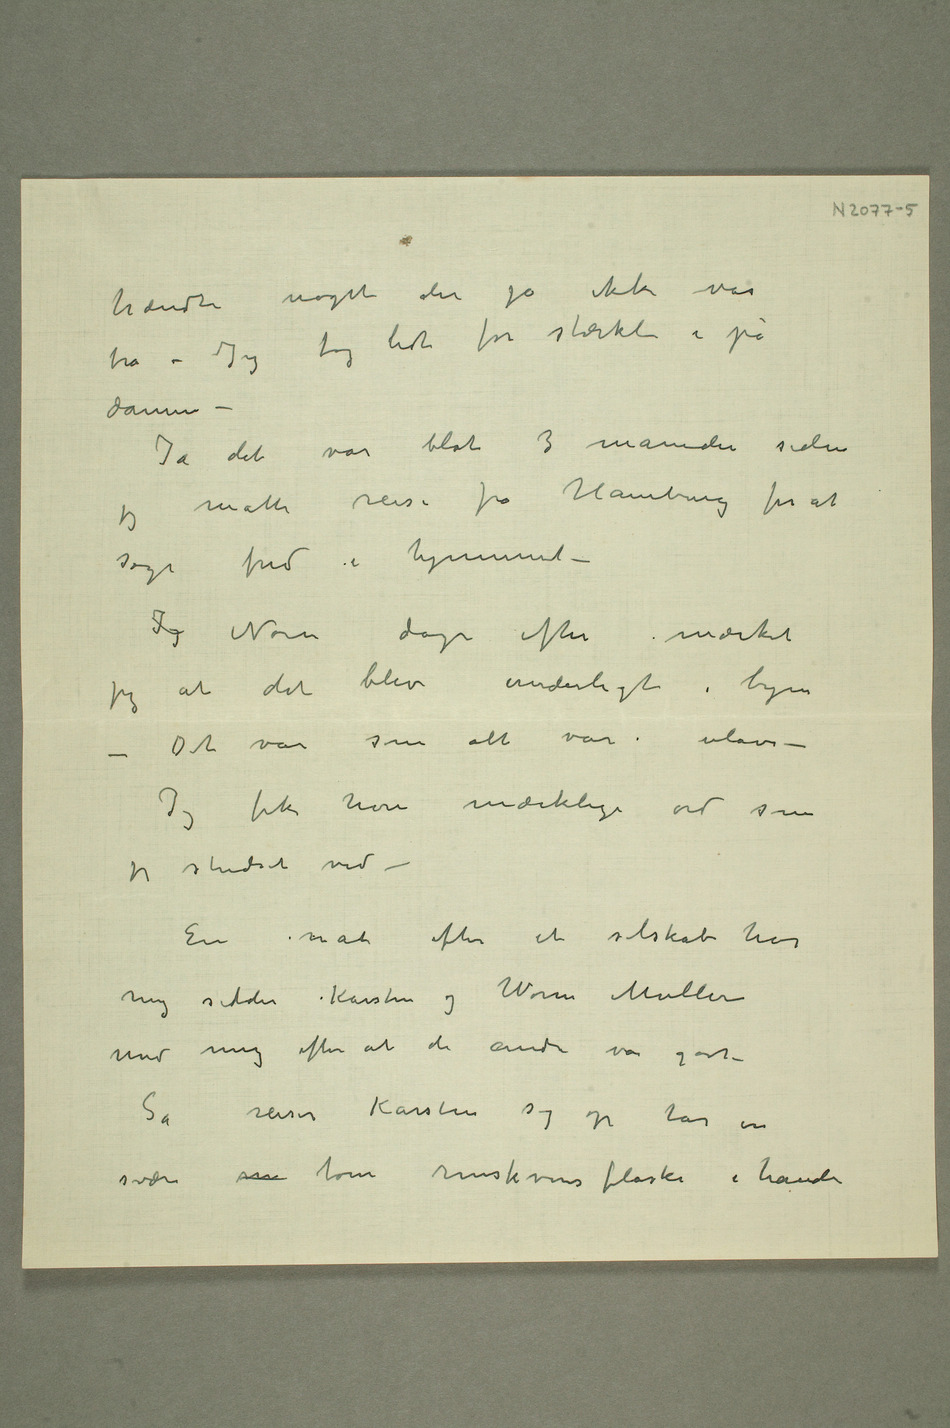 N 2077-5
hændte noget der jo ikke var
bra – Jeg tog lidt for stærkt i på
damen –
Ja det var blot 3 måneder siden
jeg måtte reise fra Hamburg for at
søge fred i hjemmet –
Jeg Noen dage efter mærket
jeg at det blev underligt i byen
– Det var som alt var i ulave –
Jeg fik høre mærkelige ord som
jeg studset ved –
En nat efter et selskab hos
mig sidder Karsten og Worm Müller
med mig efter at de andre var gåt –
Så reiser Karsten sig op tar en
svær tom rinskvinsflaske i hånden